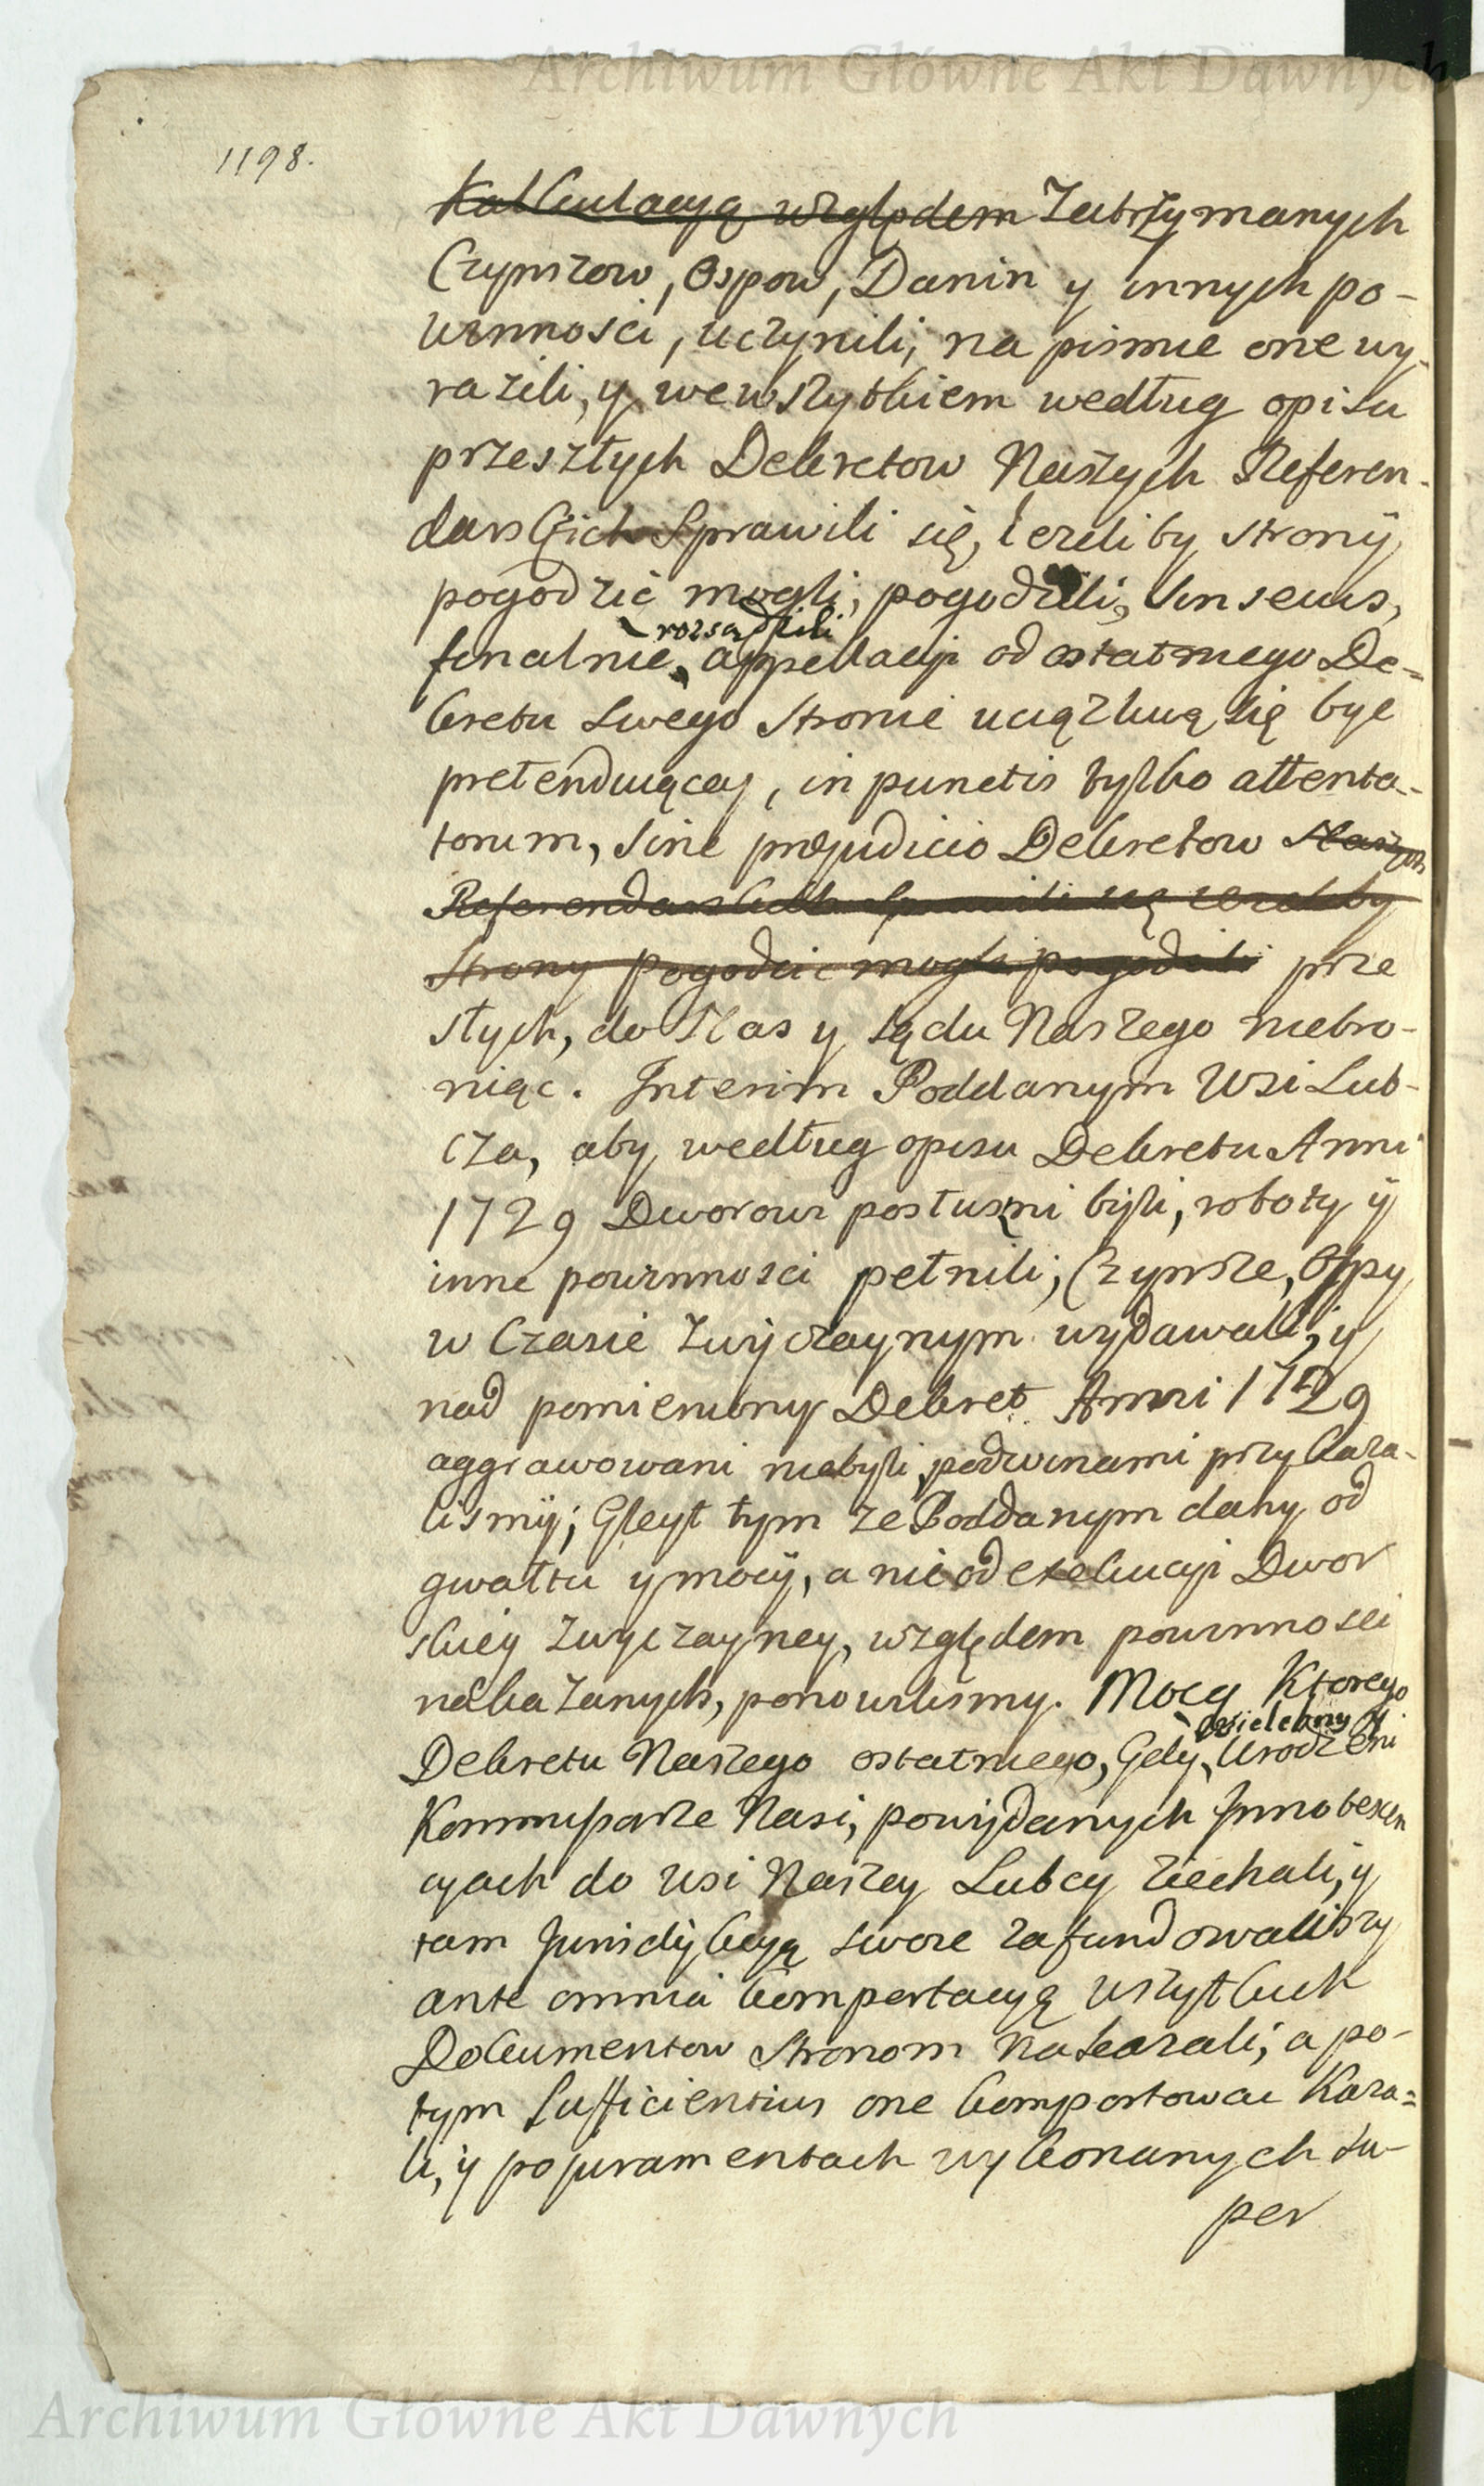 Archiwum Główne Akt Dawnych
1198.
Kalkulacyą względem Zatrzymanych
Czynszow, Ospow, Danin y innych po-
winnosci, uczynili, na pismie one wy-
razili, y we wszytkiem według opisu
przeszłych Dekretow Naszych Referen-
darskich Sprawili się, ieżeliby strony
pogodzić mogli, pogodzili, sin secus,
rozsądzili
finalnie, appellacyi od ostatniego De-
kretu swego stronie uciążliwą się być
pretenduiącey, in punctis tylko attenta-
torum, sine præjudicio Dekretow Naszych
Referendarskich Sprawili się ieżeliby
strony pogodzić mogli pogodzili prze
słych, do Nas y sądu Naszego niebro-
niąc. Interim Poddanym Wsi Lub-
cza, aby według opisu Dekretu Anni
1729 Dworowi posłuszni byli, roboty y
inne powinnosci pełnili, Czynsze, Ospy
w Czasie zwyczaynym wydawali, y
nad pomieniony Dekret Anni 1729
aggrawowani niebyli, pod winami przykaza-
lismy; Gleyt tym że Poddanym dany od
gwałtu y mocy, a nie od exekucyi Dwor
skiey zwyczayney, względem powinnosci
nakazanych, ponowilismy. Mocą Ktorego
Wielebny y
Dekretu Naszego ostatniego, Gdy Urodzeni
Kommissarze Nasi, po wydanych Innotescen
cyach do wsi Naszey Lubcy ziechali, y
tam Jurisdykcyą swoie zafundowaliszy
ante omnia komportacyą wszytkich
Dokumentow stronom nakazali, a po-
tym sufficientius one komportowac Kaza-
li, y po juramentach wykonanych su-
per
Archiwum Główne Akt Dawnych